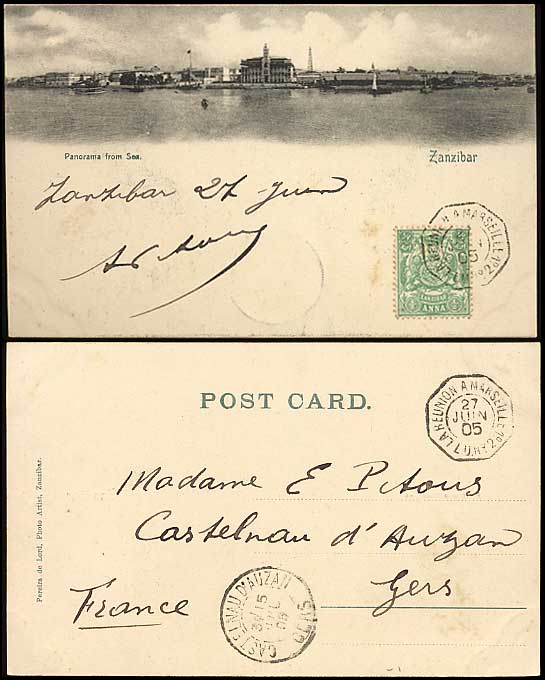 Panorama from Sea.
Zanzibar
Zanzibar 27 Juin
LA REUNION A MARSEILLE
05
ZANZIBAR
ANNA
POST CARD.
LA REUNION A MARSEILLE
27
JUIN
05
Madame E Pitous
Castelnau d'Auzan
Gers
France
CASTELNAU D'AUZAN
GERS
15
Pereira de Lord, Photo Artist, Zanzibar.